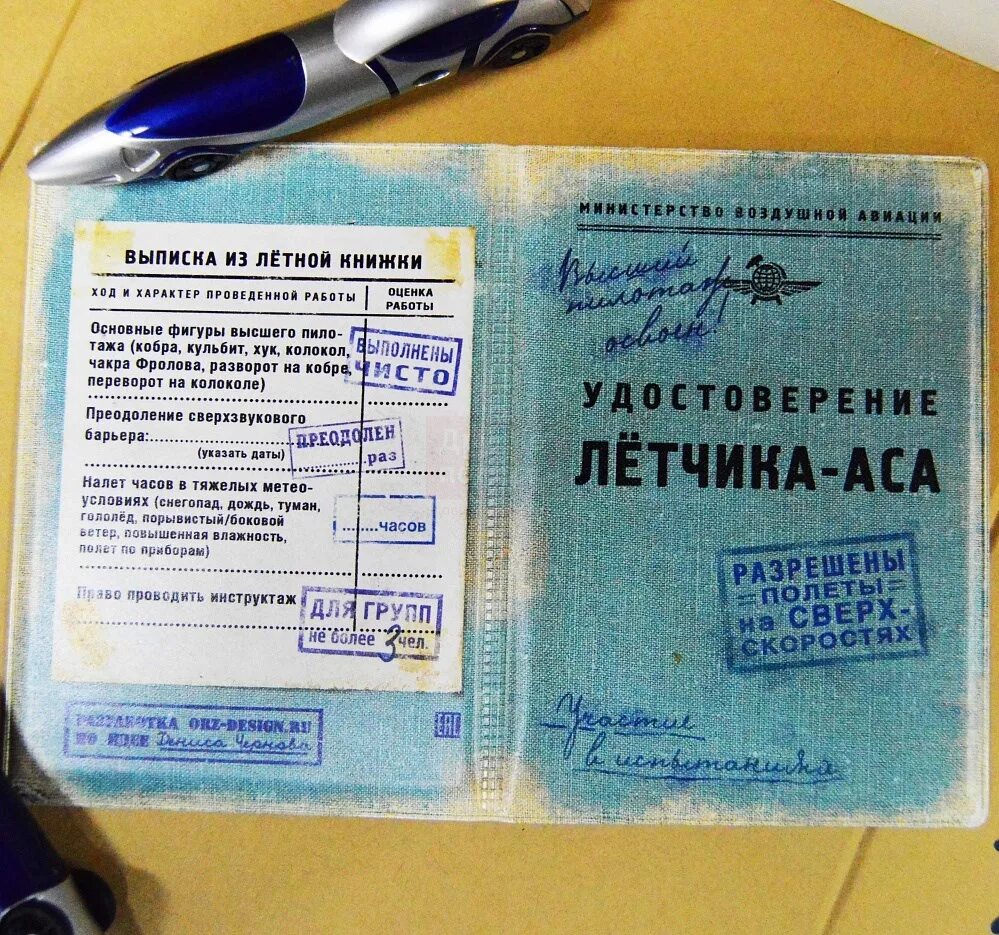 ВЫПИСКА ИЗ ЛЁТНОЙ КНИЖКИ
ХОД И ХАРАКТЕР ПРОВЕДЕННОЙ РАБОТЫ
ОЦЕНКА
РАБОТЫ
Основные фигуры высшего пило-
тажа (кобра, кульбит, хук, колокол,
чакра Фролова, разворот на кобре,
переворот на колоколе)
ВЫПОЛНЕНЫ
ЧИСТО
Преодоление сверхзвукового
барьера:
(указать даты)
ПРЕОДОЛЕН
раз
Налет часов в тяжелых метео-
условиях (снегопад, дождь, туман,
гололёд, порывистый/боковой
ветер, повышенная влажность,
полет по приборам)
часов
Право проводить инструктаж
ДЛЯ ГРУПП
не более 3 чел.
РАЗРАБОТКА ORZ-DESIGN.RU
ПО ИДЕЕ Дениса Чернова
EAC
МИНИСТЕРСТВО ВОЗДУШНОЙ АВИАЦИИ
Высший
пилотаж
освоен!
УДОСТОВЕРЕНИЕ
ЛЁТЧИКА-АСА
РАЗРЕШЕНЫ
ПОЛЕТЫ
на СВЕРХ-
СКОРОСТЯХ
Участие
в испытаниях